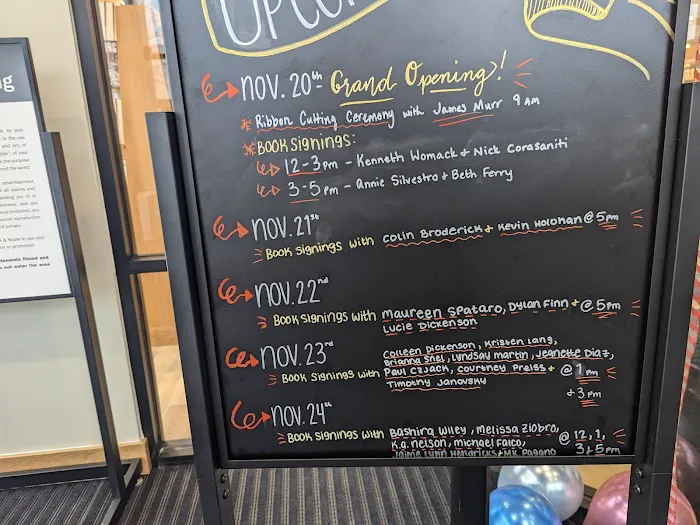 Nov. 20th Grand Opening!
* Ribbon Cutting Ceremony with James Murr 9 AM
* Book Signings:
12-3pm - Kenneth Womack & Nick Corasaniti
3-5pm - Annie Silvestro & Beth Ferry
Nov. 21st
Book Signings with Colin Broderick & Kevin Holohan @ 5pm
Nov. 22nd
Book Signings with Maureen Spataro, Dylan Finn & @ 5pm
Lucie Dickenson
Nov. 23rd
Colleen Dickenson, Kristen Lang,
Brianna Snel, Lyndsay Martin, Jeanette Diaz,
Book Signings with Paul Czjack, Courtney Preiss & @ 1pm
Timothy Janovsky & 3pm
Nov. 24th
Book Signings with Bashira Wiley, Melissa Ziobro, @ 12, 1,
K.A. Nelson, Michael Falco, 3 & 5pm
Jaime Lynn Hendricks & MK Pagano